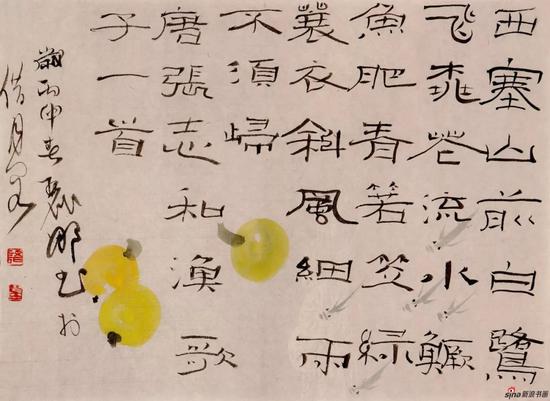 西塞山前白鷺
飞桃花流水鱖
魚肥青箬笠緑
蓑衣斜風細雨
不須歸
唐張志和漁歌
子一首
歲丙申春
借月
sina新浪书画